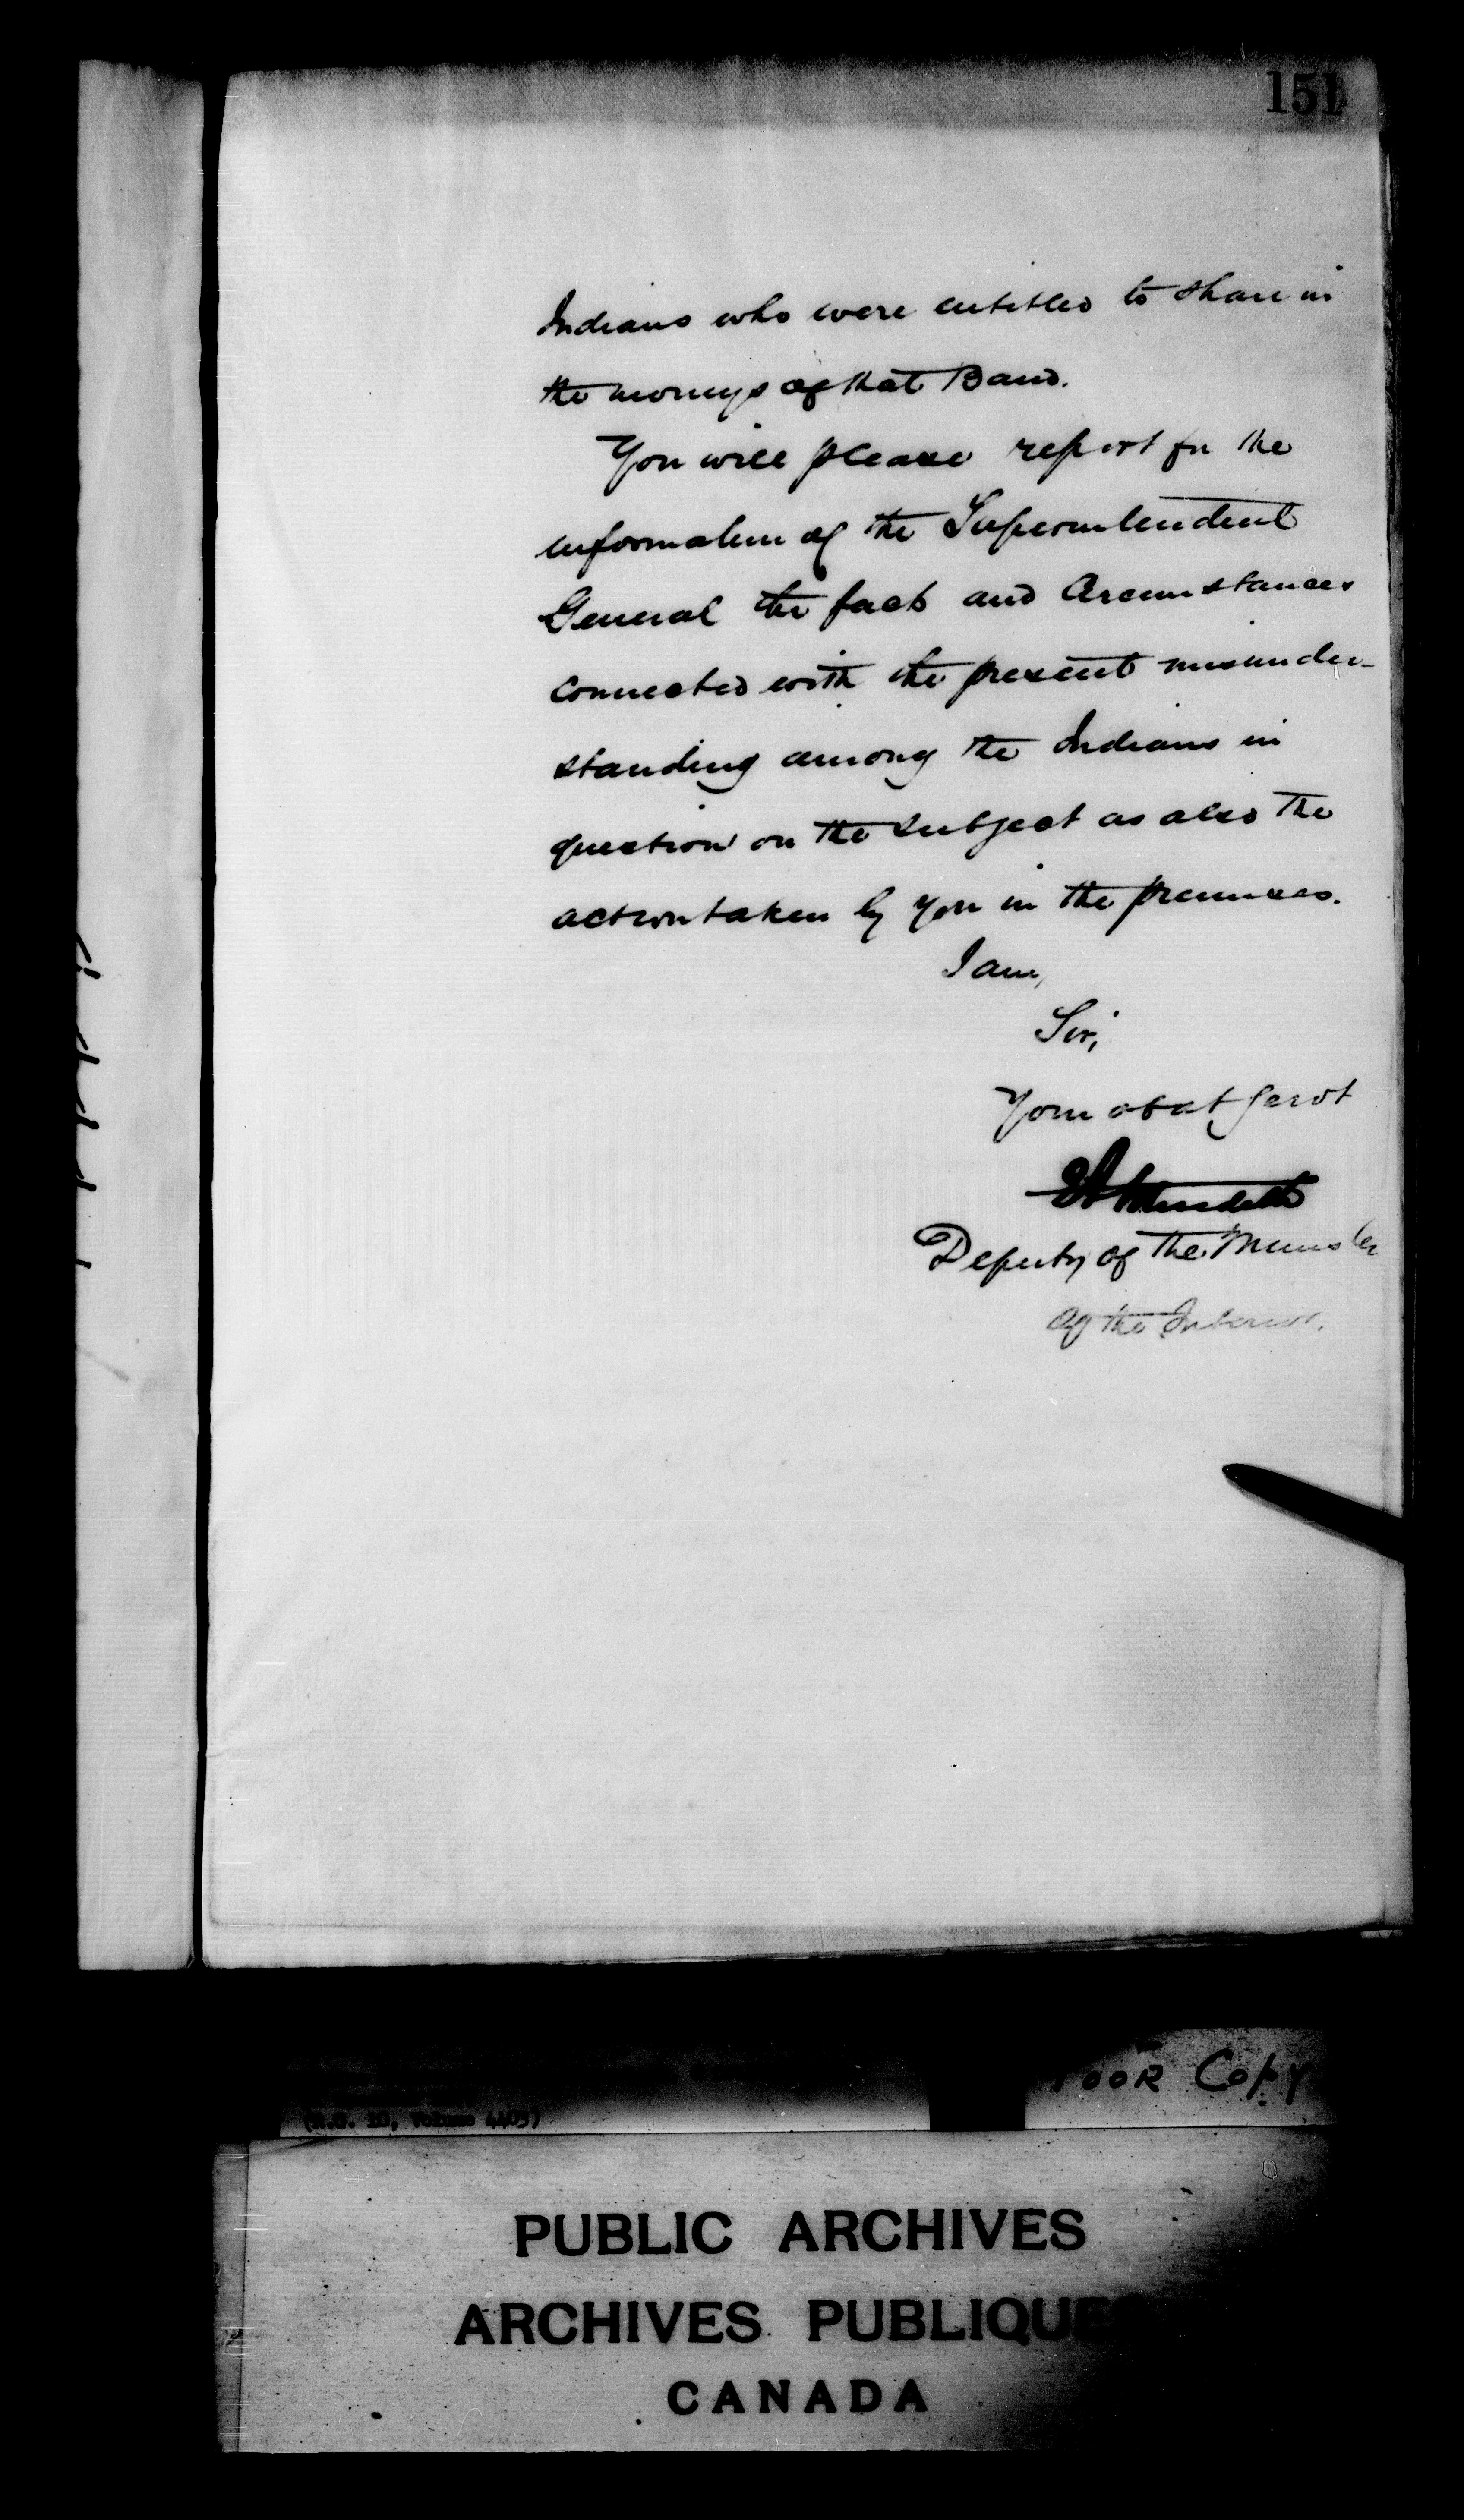 151
Indians who were entitled to share in
the moneys of that Band.
You will please report for the
information of the Superintendent
General the facts and Circumstances
connected with the present misunder-
standing among the Indians in
question on the subject as also the
action taken by you in the premises.
I am,
Sir,
Your obdt Servt
EA Meredith
Deputy of the Minister
of the Interior.
POOR COPY
(R.G. 10, Volume 4409)
PUBLIC ARCHIVES
ARCHIVES PUBLIQUES
CANADA